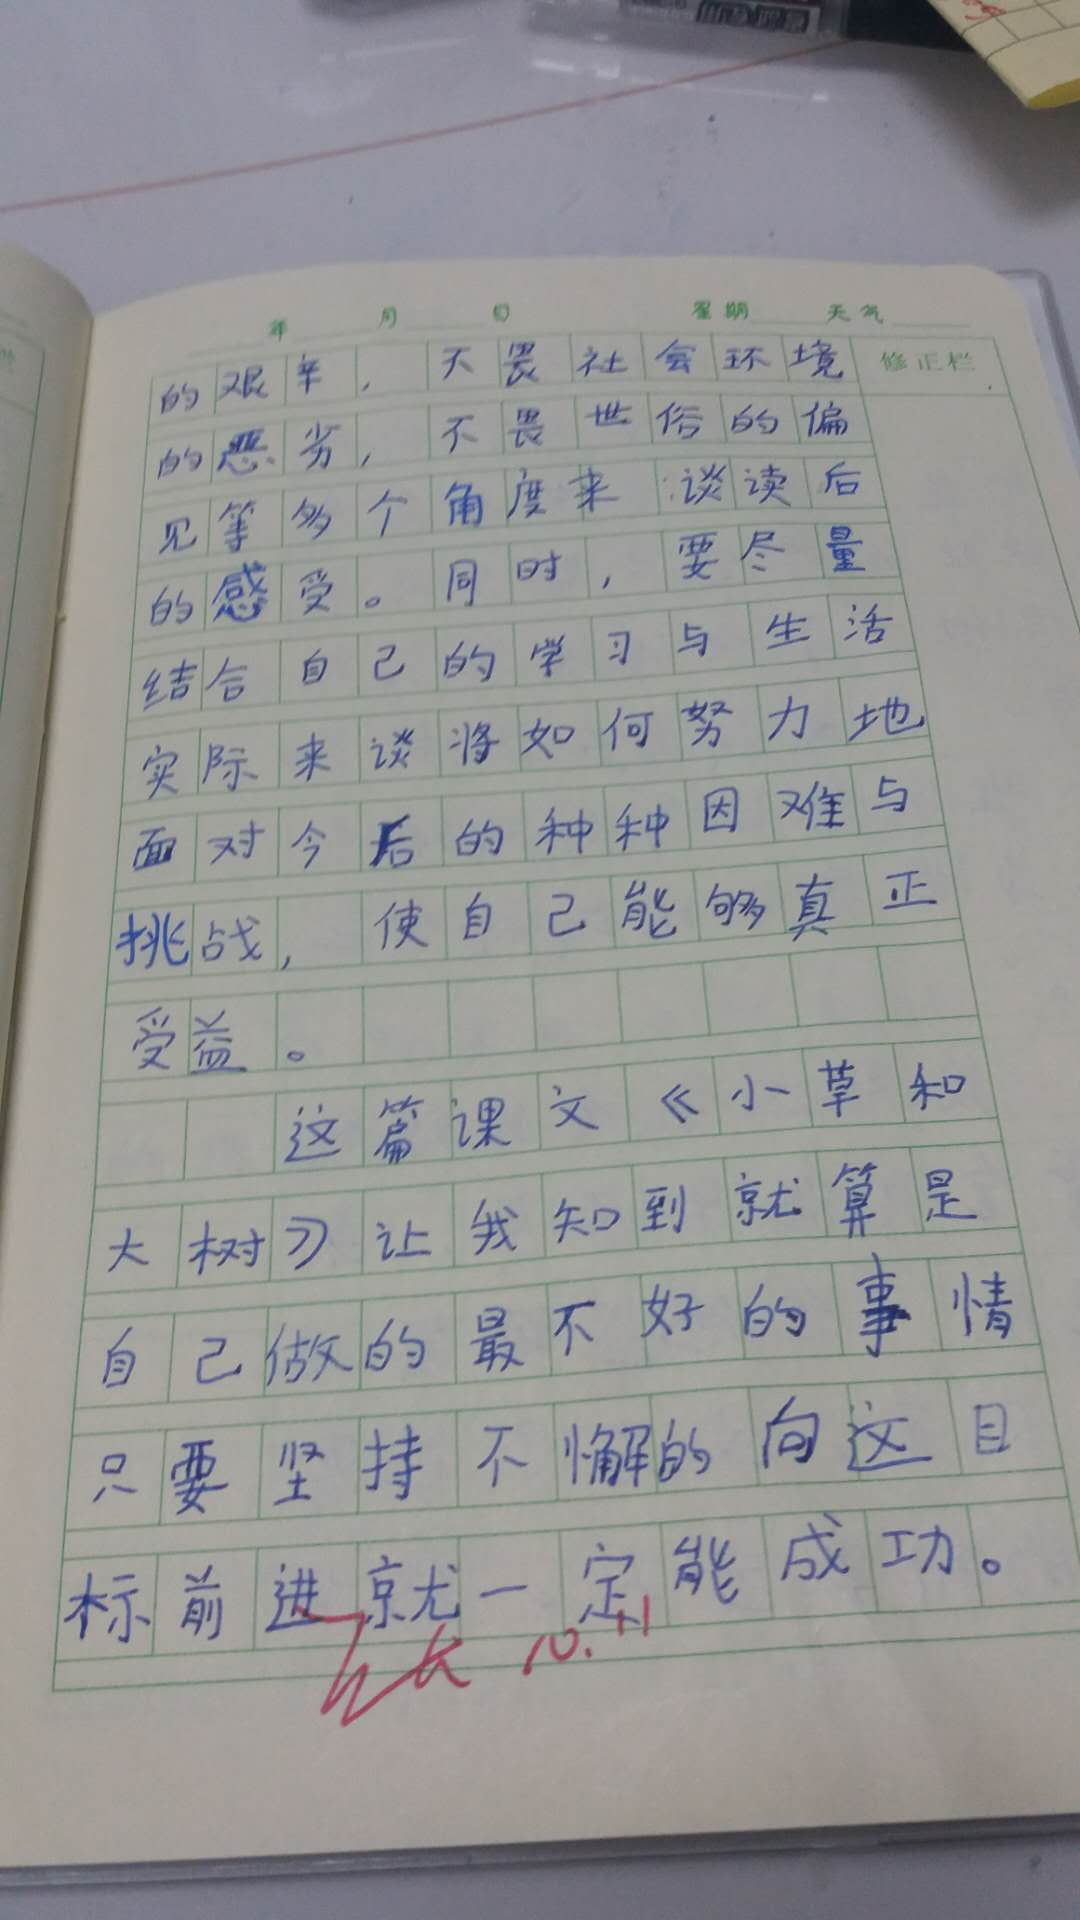 年 月 日 星期 天气
修正栏
的艰辛，不畏社会环境
的恶劣，不畏世俗的偏
见等多个角度来谈读后
的感受。同时，要尽量
结合自己的学习与生活
实际来谈将如何努力地
面对今后的种种因难与
挑战，使自己能够真正
受益。
这篇课文《小草和
大树》让我知到就算是
自己做的最不好的事情
只要坚持不懈的向这目
标前进就一定能成功。
10.11